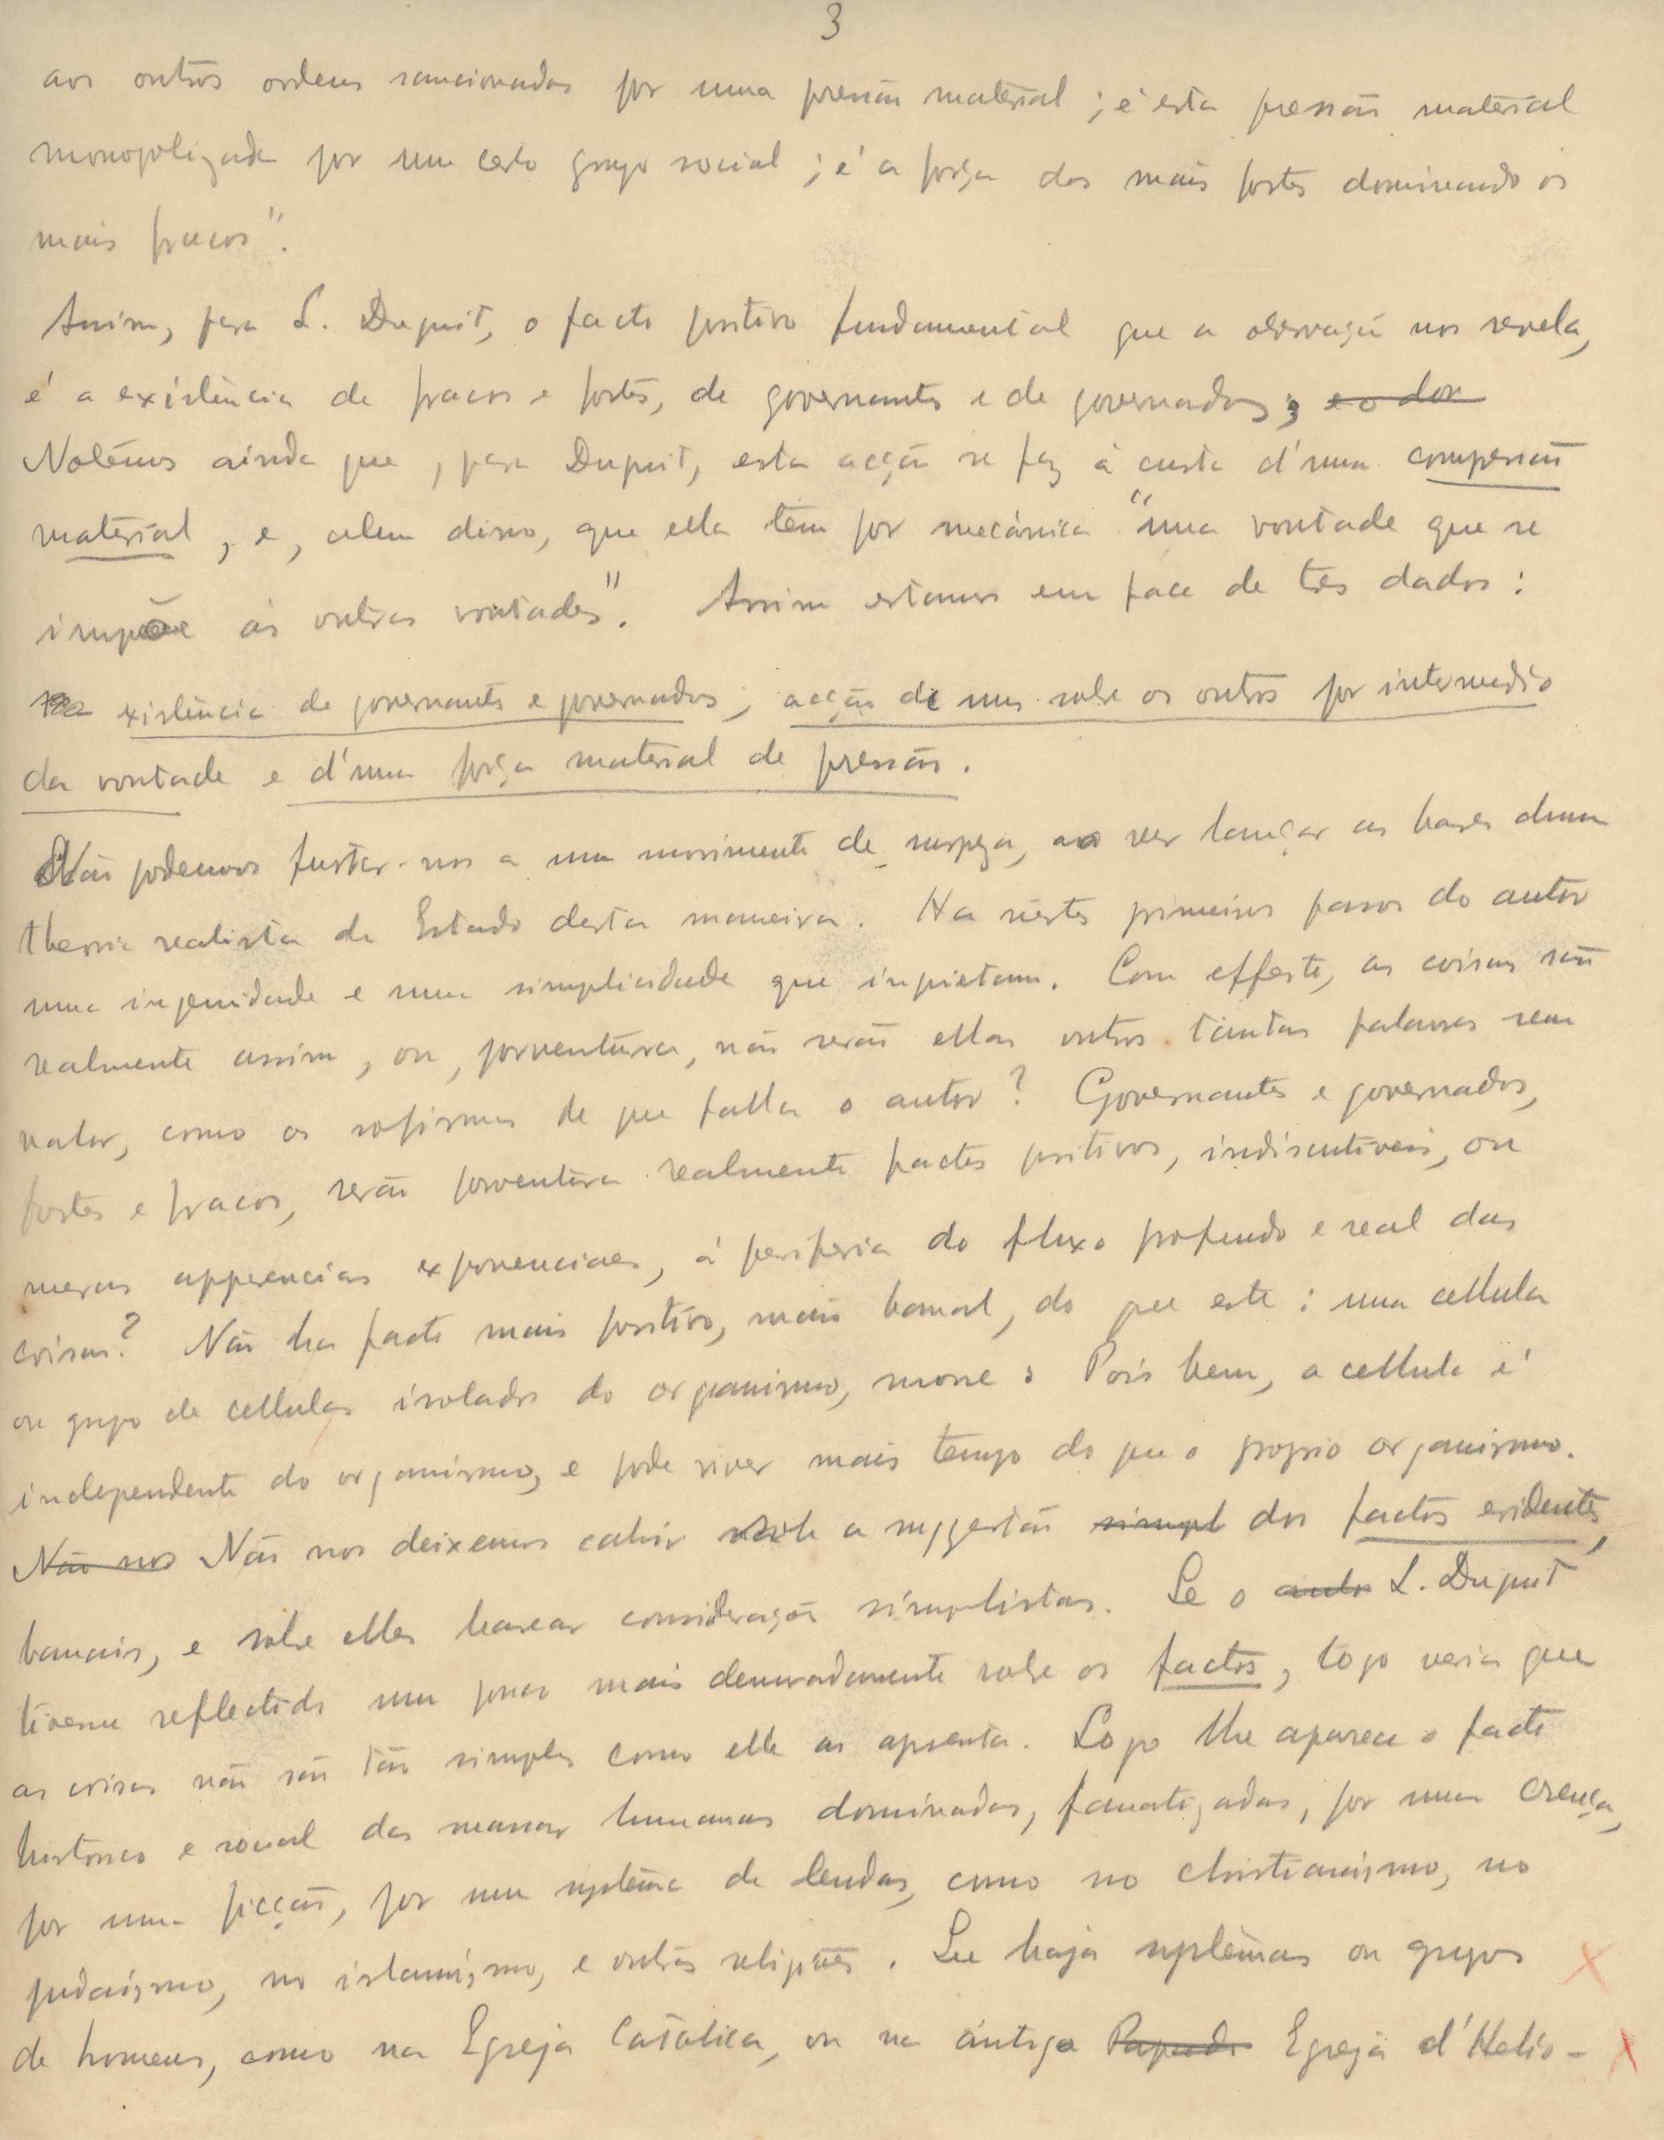 3
aos outros ordens sancionadas por uma pressão material; é esta pressão material
monopolizada por um certo grupo social; é a força dos mais fortes dominando os
mais fracos".
Assim, para L. Duguit, o facto positivo fundamental que a observação nos revela,
é a existência de fracos e fortes, de governantes e de governados; e o dor
Notêmos ainda que, para Duguit, esta acção se faz à custa d'uma compressão
material, e, alem disso, que ella têm por mecánica "uma vontade que se
impõe ás outras vontades". Assim estamos em face de tres dados:
existência de governantes e governados; acção de uns sobre os outros por intermedio
da vontade e d'uma força material de pressão.
Não podemos furtar-nos a um movimento de surpeza, ao ver lançar as bases duma
theoria realista do Estado desta maneira. Ha nestes primeiros passos do autor
uma ingenuidade e uma simplicidade que inquietam. Com effeito, as coisas são
realmente assim, ou, porventura, não serão ellas outras tantas palavras sem
valor, como os sofismas de que falla o autor? Governantes e governados,
fortes e fracos, serão porventura realmente factos positivos, indiscutiveis, ou
meras apparencias exponenciaes, á periferia do fluxo profundo e real das
coisas? Não ha facto mais positivo, mais banal, do que este: uma cellula
ou grupo de cellulas isolados do organismo, morre: Pois bem, a cellula é
independente do organismo, e pode viver mais tempo do que o proprio organismo.
Não nos Não nos deixemos cahir sob a suggestão simpl dos factos evidentes,
banais, e sobre elles basear considerações simplistas. Se o autor L. Duguit
tivesse reflectido um pouco mais demoradamente sobre os factos, logo veria que
as coisas não são tão simples como elle as apresenta. Logo lhe aparece o facto
historico e social das massas humanas dominadas, fanatizadas, por uma crença,
por uma ficção, por um systêma de lendas, como no christianismo, no
judaismo, no islamismo, e outras religiões. Que haja systêmas ou grupos
de homens, como na Egreja Catolica, ou na antiga Egreja d'Helio-